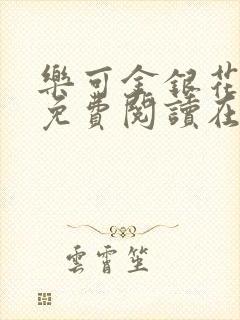 樂可金銀花
免費閱讀在
雲霄笙